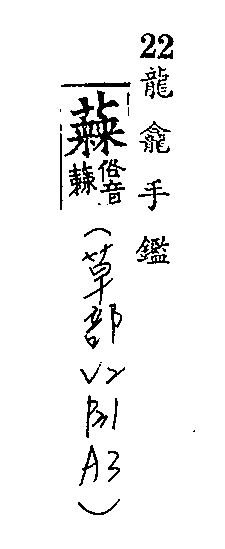 22 龍龕手鑑
俗音
(草部 V2 P31 A3)